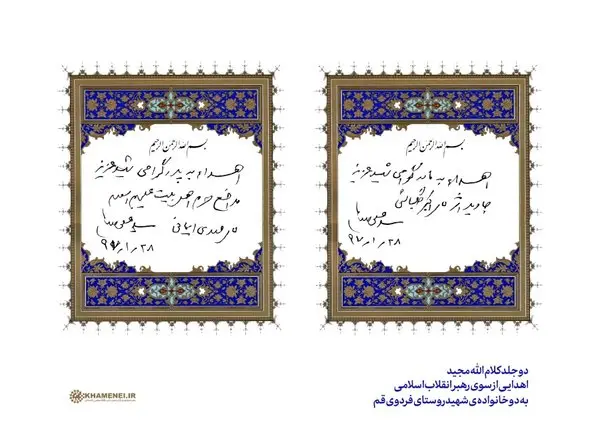 بسم الله الرحمن الرحیم
اهداء به مادر گرامی شهید عزیز
جاوید اثر علی اکبر
۹۷/۱/۲۸
بسم الله الرحمن الرحیم
اهداء به پدر گرامی شهید عزیز
مدافع حرم اهل بیت علیهم السلام
مهدی ایمانی
۹۷/۱/۲۸
دو جلد کلام‌الله مجید
اهدایی از سوی رهبر انقلاب اسلامی
به دو خانواده‌ی شهید روستای فردوی قم
KHAMENEI.IR